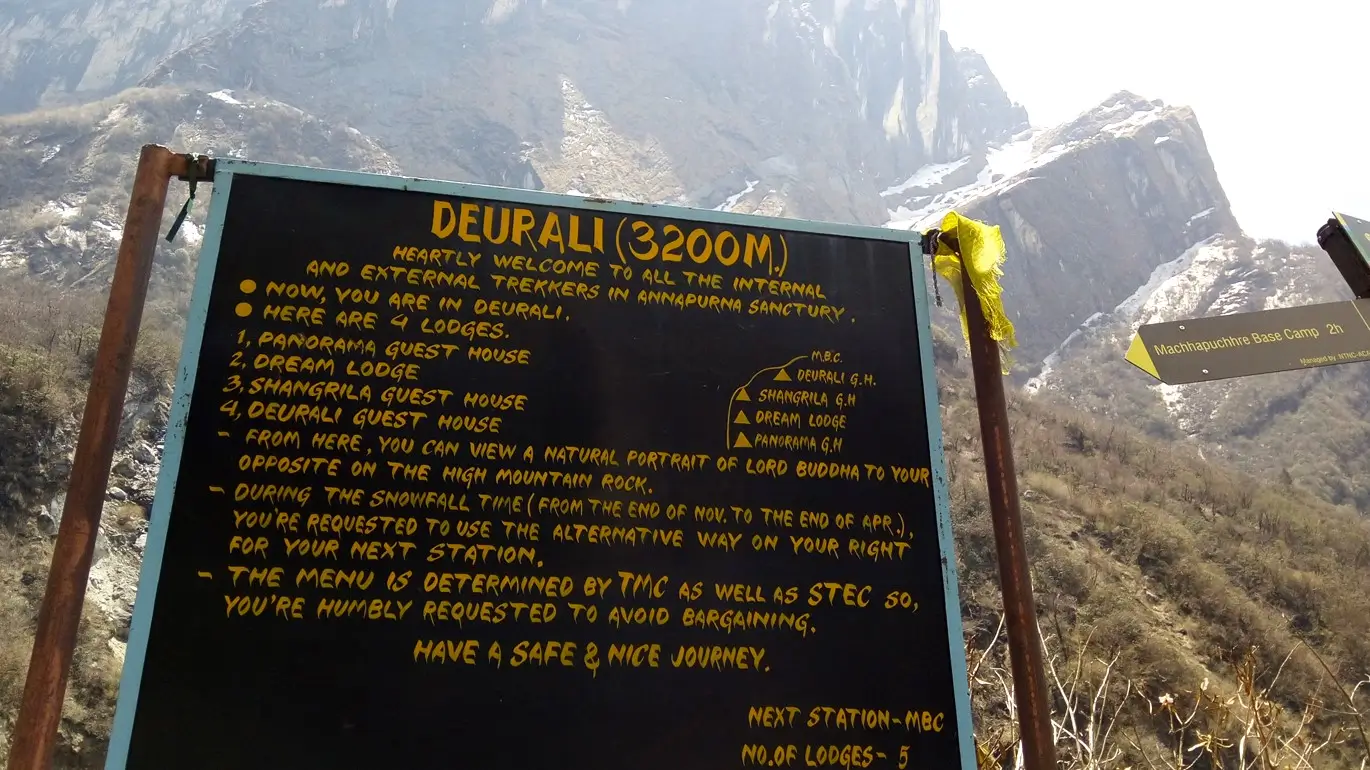 DEURALI (3200M.)
HEARTLY WELCOME TO ALL THE INTERNAL
AND EXTERNAL TREKKERS IN ANNAPURNA SANCTURY.
● NOW, YOU ARE IN DEURALI.
● HERE ARE 4 LODGES.
1, PANORAMA GUEST HOUSE
2, DREAM LODGE
3, SHANGRILA GUEST HOUSE
4, DEURALI GUEST HOUSE
M.B.C.
DEURALI G.H.
SHANGRILA G.H
DREAM LODGE
PANORAMA G.H
- FROM HERE, YOU CAN VIEW A NATURAL PORTRAIT OF LORD BUDDHA TO YOUR
OPPOSITE ON THE HIGH MOUNTAIN ROCK.
- DURING THE SNOWFALL TIME (FROM THE END OF NOV. TO THE END OF APR.),
YOU'RE REQUESTED TO USE THE ALTERNATIVE WAY ON YOUR RIGHT
FOR YOUR NEXT STATION.
- THE MENU IS DETERMINED BY TMC AS WELL AS STEC SO,
YOU'RE HUMBLY REQUESTED TO AVOID BARGAINING.
HAVE A SAFE & NICE JOURNEY.
NEXT STATION - MBC
NO. OF LODGES - 5
Machhapuchhre Base Camp 2h
Managed by: NTNC-